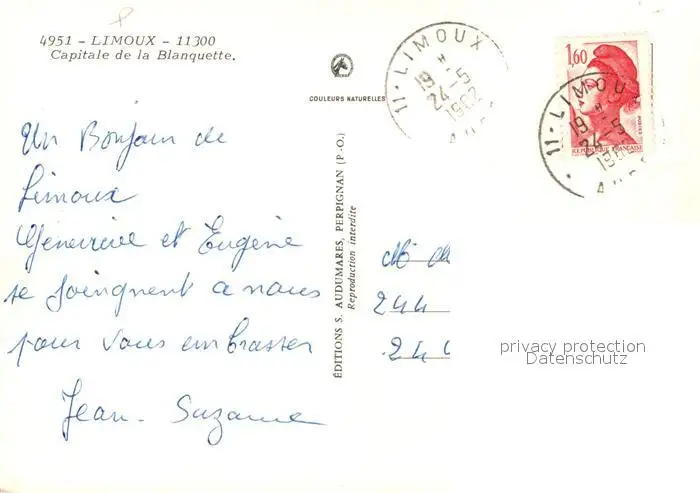 4951 - LIMOUX - 11300
Capitale de la Blanquette.
COULEURS NATURELLES
11 - LIMOUX
19 H
24-5
1982
AUDE
1,60
POSTES
REPUBLIQUE FRANÇAISE
11 - LIMOU
19 H
24-5
198
AUDE
Un Bonjour de
Limoux
Geneviève et Eugène
se joingnent a nous
pour vous embrasser
Jean - Suzanne
ÉDITIONS S. AUDUMARES, PERPIGNAN (P.-O.)
Reproduction interdite
244
24
privacy protection
Datenschutz